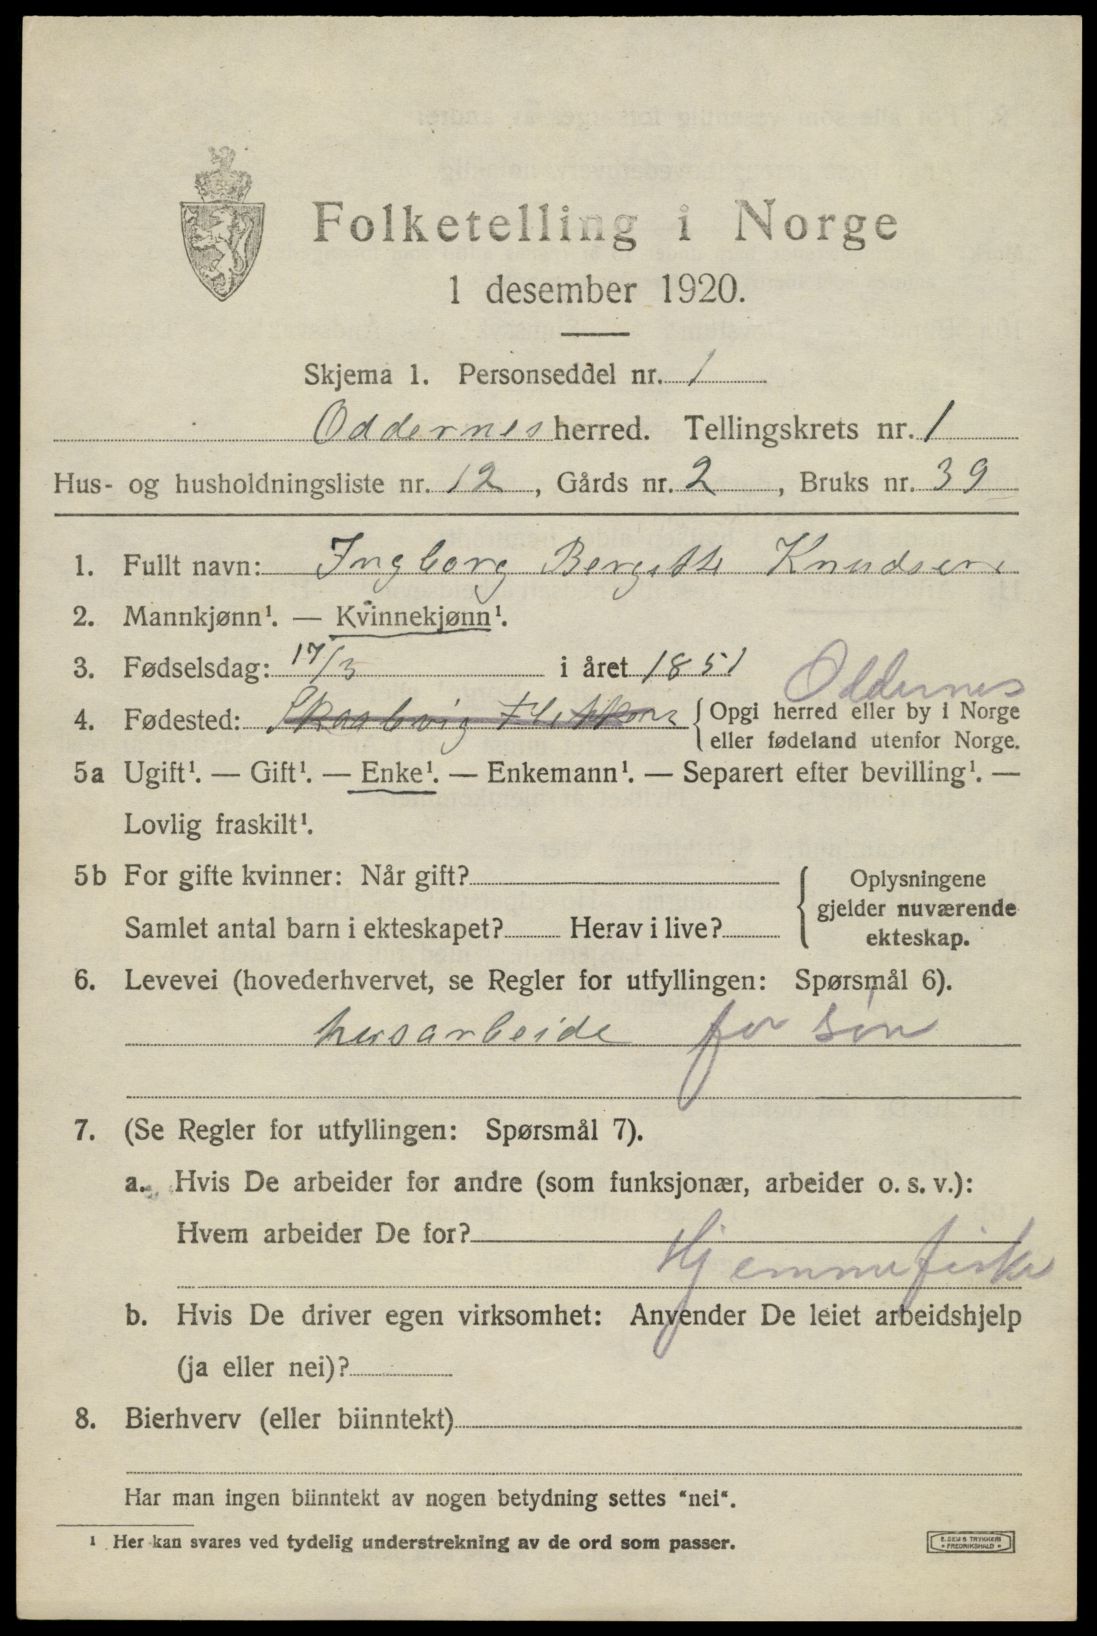 Folketelling i Norge
1 desember 1920.
Skjema 1. Personseddel nr. 1
Oddernes herred. Tellingskrets nr. 1
Hus- og husholdningsliste nr. 12, Gårds nr. 2, Bruks nr. 39
1. Fullt navn: Ingborg Bergitte Knudsen
2. Mannkjønn¹. — Kvinnekjønn¹.
3. Fødselsdag: 17/3 i året 1851
Oddernes
4. Fødested: { Opgi herred eller by i Norge
eller fødeland utenfor Norge.
5a Ugift¹. — Gift¹. — Enke¹. — Enkemann¹. — Separert efter bevilling¹. —
Lovlig fraskilt¹.
5b For gifte kvinner: Når gift? { Oplysningene
gjelder nuværende
Samlet antal barn i ekteskapet? Herav i live?
ekteskap.
6. Levevei (hovederhvervet, se Regler for utfyllingen: Spørsmål 6).
husarbeide for søn
7. (Se Regler for utfyllingen: Spørsmål 7).
a. Hvis De arbeider for andre (som funksjonær, arbeider o. s. v.):
Hvem arbeider De for?
Hjemmefiske
b. Hvis De driver egen virksomhet: Anvender De leiet arbeidshjelp
(ja eller nei)?
8. Bierhverv (eller biinntekt)
Har man ingen biinntekt av nogen betydning settes "nei".
¹ Her kan svares ved tydelig understrekning av de ord som passer.
E. SEM'S TRYKKERI
FREDRIKSHALD